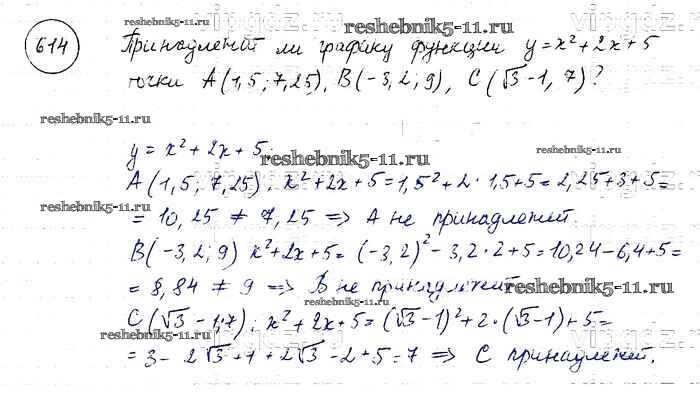 614 Принадлежит ли графику функции y = x² + 2x + 5
точки A(1,5; 7,25), B(-3,2; 9), C(√3 - 1, 7)?
y = x² + 2x + 5;
A(1,5; 7,25); x² + 2x + 5 = 1,5² + 2 · 1,5 + 5 = 2,25 + 3 + 5 =
= 10,25 ≠ 7,25 => A не принадлежит.
B(-3,2; 9) x² + 2x + 5 = (-3,2)² - 3,2 · 2 + 5 = 10,24 - 6,4 + 5 =
= 8,84 ≠ 9 => B не принадлежит
C(√3 - 1; 7); x² + 2x + 5 = (√3 - 1)² + 2 · (√3 - 1) + 5 =
= 3 - 2√3 + 1 + 2√3 - 2 + 5 = 7 => C принадлежит.
reshebnik5-11.ru
reshebnik5-11.ru
reshebnik5-11.ru
reshebnik5-11.ru
reshebnik5-11.ru
reshebnik5-11.ru
reshebnik5-11.ru
reshebnik5-11.ru
reshebnik5-11.ru